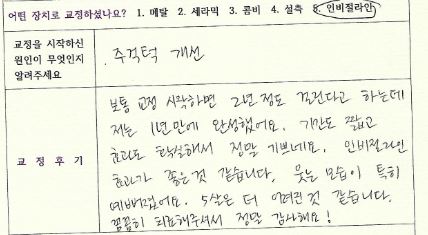 어떤 장치로 교정하셨나요? 1. 메탈 2. 세라믹 3. 콤비 4. 설측 5. 인비절라인
교정을 시작하신
원인이 무엇인지
알려주세요
. 주걱턱 개선
교 정 후 기
보통 교정 시작하면 2년정도 걸린다고 하는데
저는 1년만에 완성했어요. 기간도 짧고
효과도 확실해서 정말 기쁘네요. 인비절라인
효과가 좋은것 같습니다. 웃는 모습이 특히
예뻐졌어요. 5살은 더 어려진것 같습니다.
꼼꼼히 치료해주셔서 정말 감사해요!